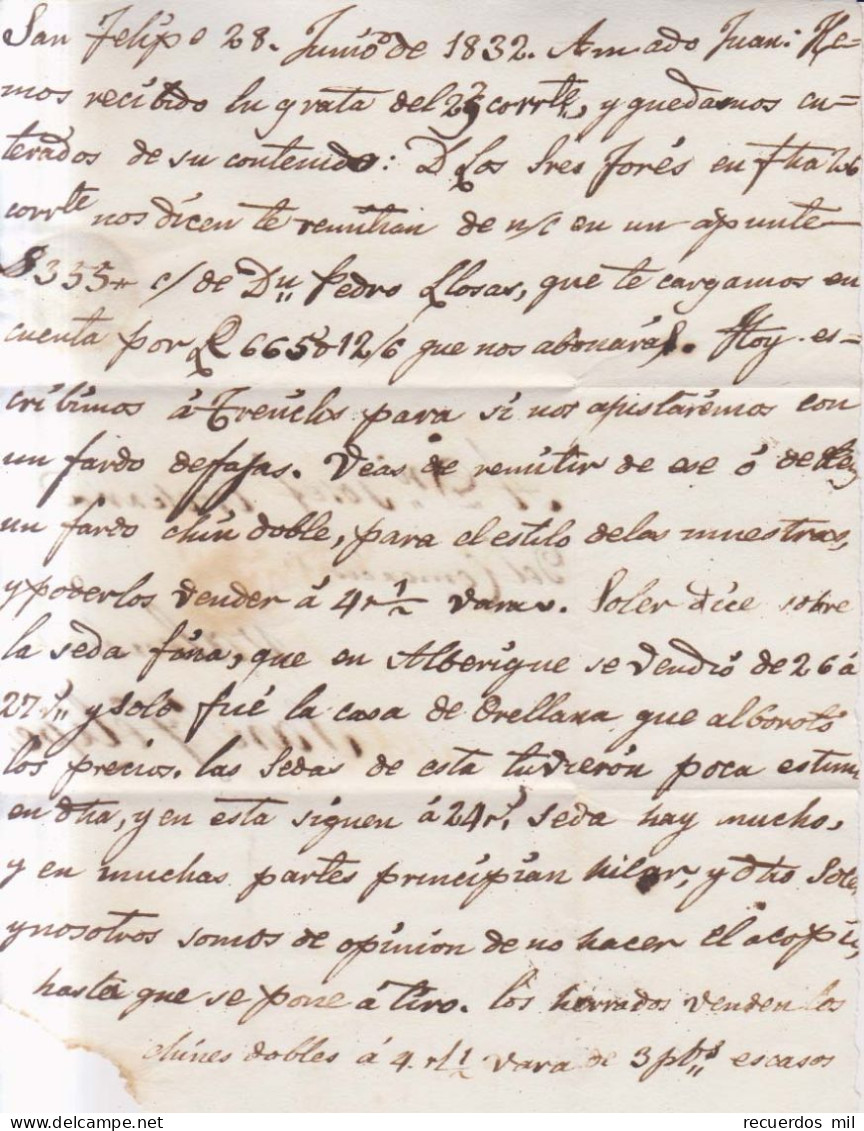 San Felipe 28. Junio de 1832. Amado Juan: He-
mos recibido tu grata del 25 corrte, y quedamos en-
terados de su contenido: Los Sres Forés en fha 26
corrte nos dicen te remitian de n/c en un apunte
355 c/ de Dn Pedro Llosas, que te cargamos en
cuenta por 665 12/6 que nos abonarás. Hoy es-
cribimos á Trenchs para si nos apistarémos con
un fardo de fajas. Veas de remitir de ese ó de
un fardo chin doble, para el estilo de las muestras,
y poderlos vender á 4 r 1/2 vara. Soler dice sobre
la seda fina, que en Alberique se vendió de 26 á
27 rs y solo fué la casa de Orellana que alborotó
los precios. las sedas de esta tuvierón poca estim
en dha, y en esta siguen á 24 rs. seda hay mucho,
y en muchas partes principian hilar, y dho Soler
y nosotros somos de opinion de no hacer el acopio,
hasta que se pone á tiro. los herrados venden los
chines dobles á 4 r 1/2 vara de 3 pbs escasos
recuerdos mil